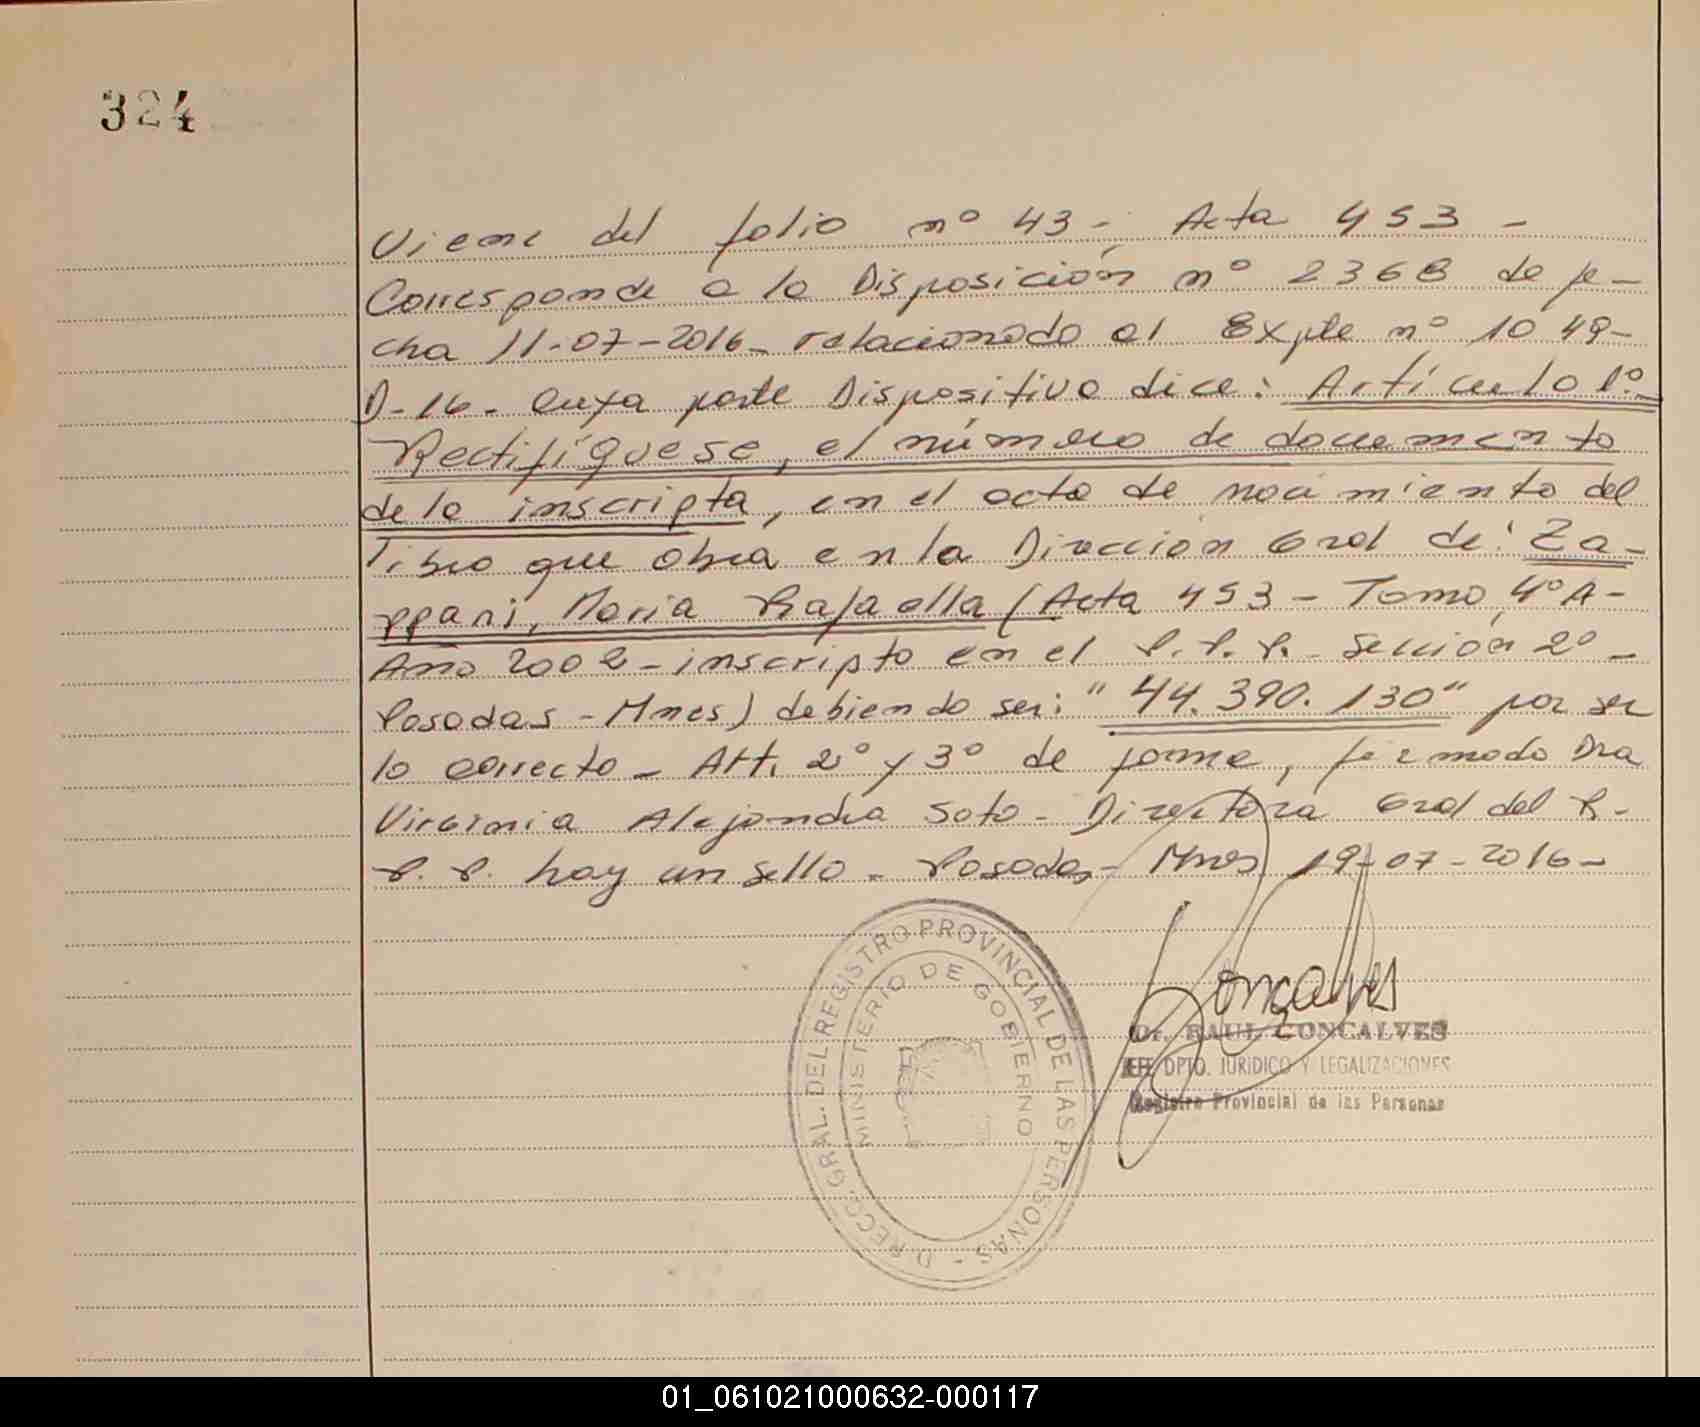 324
Viene del folio nº 43 - Acta 453 -
Corresponde a la Disposición nº 2368 de fe-
cha 11-07-2016- relacionado al Expte nº 1049-
D-16- cuya parte Dispositiva dice: Artículo 1º-
Rectifíquese, el número de documento
de la inscripta, en el acta de nacimiento del
libro que obra en la Dirección Gral de: Za-
ppani, Maria Rafaella (Acta 453 - Tomo 4º A-
Año 2002 - inscripto en el R.P.P. Sección 2º -
Posadas - Mnes) debiendo ser: "44.390.130" por ser
lo correcto - Att. 2º y 3º de forma, firmado Dra
Virginia Alejandra Soto - Directora Gral del R.
P. P. hay un sello - Posadas - Mnes 19-07-2016-
Goncalves
Dr. RAUL GONCALVES
JEFE DPTO. JURIDICO Y LEGALIZACIONES
Registro Provincial de las Personas
DIRECC. GRAL. DEL REGISTRO PROVINCIAL DE LAS PERSONAS -
MINISTERIO DE GOBIERNO
01_061021000632-000117